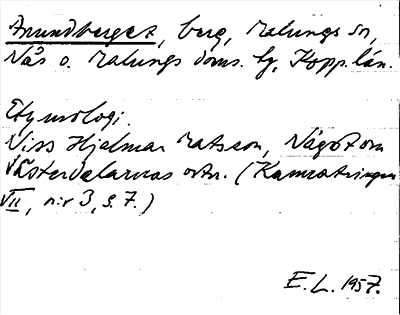 Amundberget, berg, Malungs sn,
Nås o. Malungs doms. hg, Kopp. län.
Etymologi.
Viss Hjalmar Matsson, Något om
Västerdalarnas ortn. (Kamratringen
VII, n:r 3, s. 7.)
E.L. 1957.